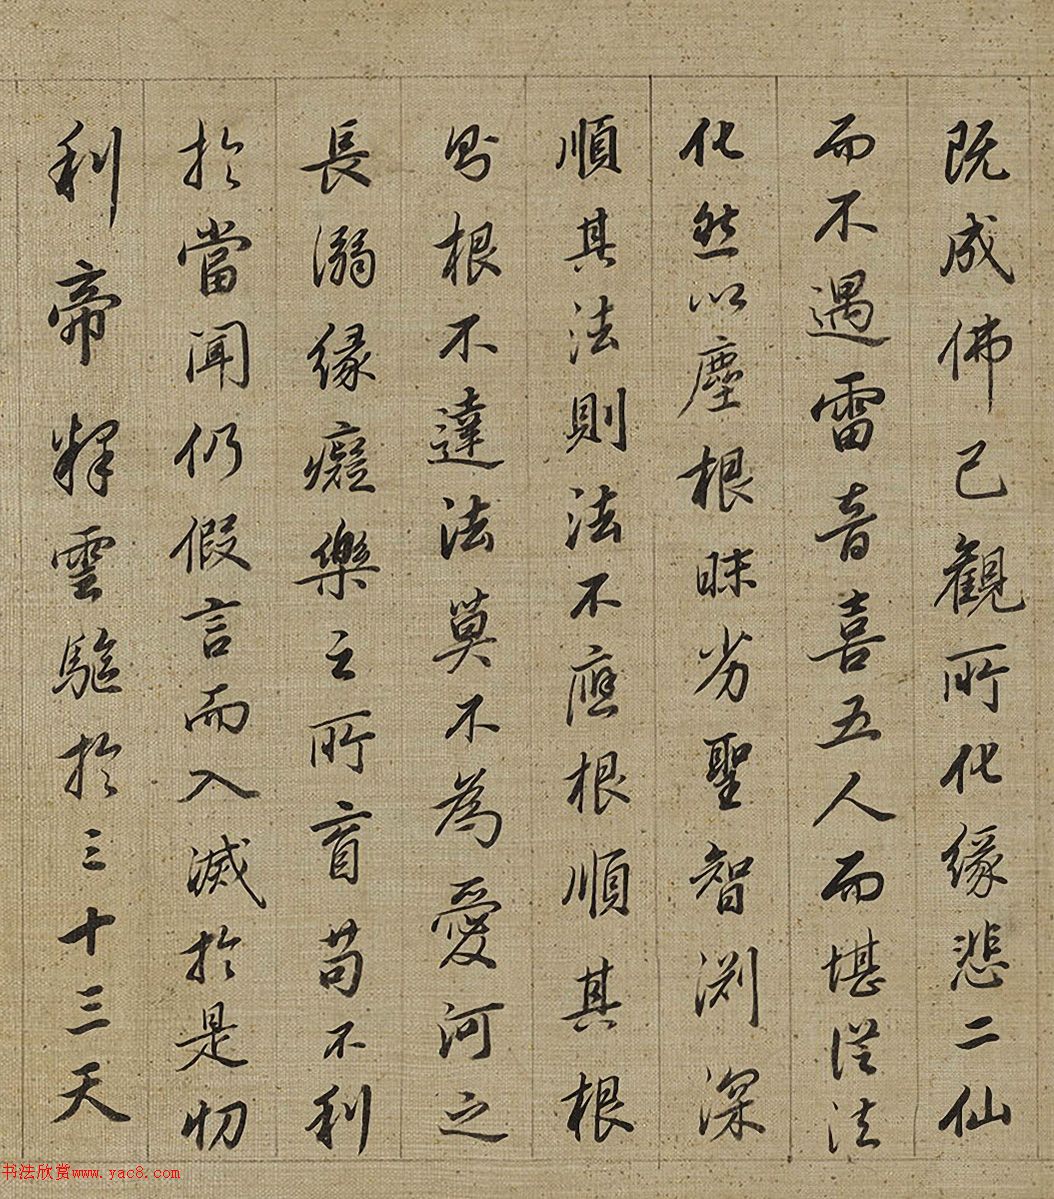 既成佛已觀所化緣悲二仙
而不遇雷音喜五人而堪從法
化然以塵根昧劣聖智渊深
順其法則法不應根順其根
則根不達法莫不為愛河之
長溺緣癡樂之所盲苟不利
於當聞仍假言而入滅於是忉
利帝釋雲驅於三十三天
书法欣赏www.yac8.com